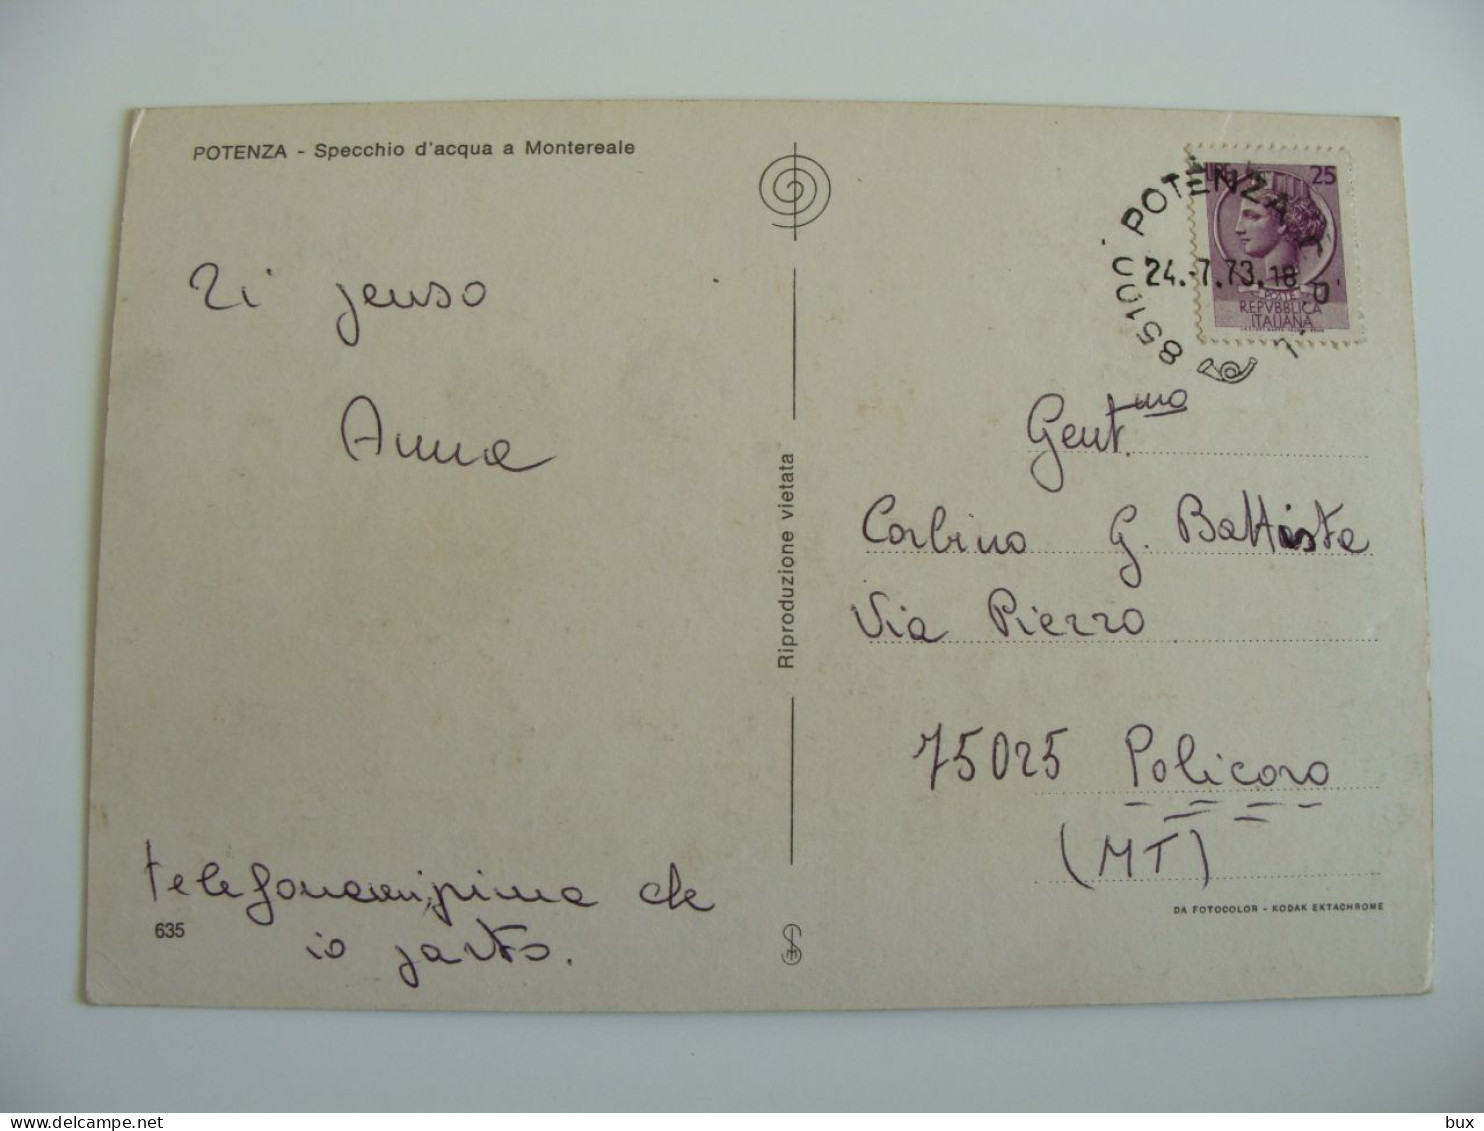 POTENZA - Specchio d'acqua a Montereale
Ti penso
Anna
telefonami, prima che
io parto.
635
Riproduzione vietata
LIRE 25
POSTE
REPVBBLICA
ITALIANA
85100 POTENZA
24.-7.73.18
Gent.mo
Corbino G. Battista
Via Pierro
75025 Policoro
(MT)
DA FOTOCOLOR - KODAK EKTACHROME
delcampe.net
bux